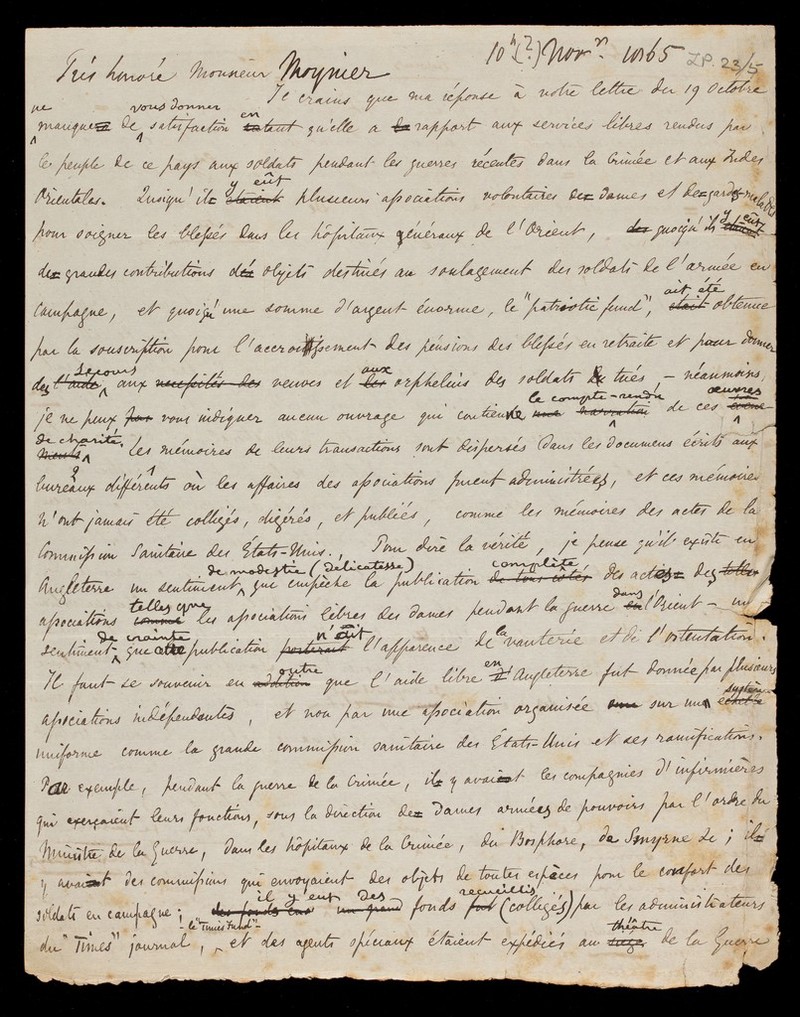 10h (?) Novr. 1865 LP. 22/5
Très honoré Monsieur Moynier
Je crains que ma réponse à votre lettre du 19 Octobre
ne vous donner en
manquera de satisfaction tant qu'elle a rapport aux services libres rendus par
le peuple de ce pays aux soldats pendant les guerres récentes dans la Crimée et aux Indes
y eût
Orientales. Quoiqu'il étaient plusieurs associations volontaires des dames et de gardes-malades
y eût
pour soigner les blessés dans les hôpitaux généraux de l'Orient, des quoiqu'ils étaient
des grandes contributions des objets destinés au soulagement des soldats de l'armée en
ait été
campagne, et quoiqu'une somme d'argent énorme, le "patriotic fund", était obtenue
par la souscription pour l'accroissement des pensions des blessés en retraite et pour donner
secours aux
des l'aide aux necessités des veuves et les orphelins des soldats tués, — néanmoins,
le compte-rendu œuvres
je ne peux pas vous indiquer aucun ouvrage qui contienne une narration de ces
de charité.
Les mémoires de leurs transactions sont dispersés dans les documens écrits aux
bureaux différents où les affaires des associations furent administrées, et ces mémoires
n'ont jamais été colligés, digérés, et publiés, comme les mémoires des actes de la
Commission Sanitaire des États-Unis. Pour dire la vérité, je pense qu'il existe en
de modestie (délicatesse) complète
Angleterre un sentiment que empêche la publication de tous côtés des actes des telles
telles que dans
associations comme les associations libres des dames pendant la guerre en l'Orient — un
de crainte n'ait la
sentiment que cette publication porterait l'apparence de vanterie et de l'ostentation.
outre en
Il faut se souvenir en addition que l'aide libre d'Angleterre fut donnée par plusieurs
système
associations indépendantes, et non par une association organisée sur un
uniforme comme la grande commission sanitaire des États-Unis et ses ramifications.
Par exemple, pendant la guerre de la Crimée, il y avait les compagnies d'infirmières
qui exerçaient leurs fonctions, sous la direction des Dames armées de pouvoirs par l'ordre du
Ministre de la Guerre, dans les hôpitaux de la Crimée, du Bosphore, de Smyrne &c ; il
y avait des commissions qui envoyaient des objets de toutes espèces pour le comfort des
il y eut des recueillis
soldats en campagne ; des fonds un grand fonds fut (colligés) par les administrateurs
- le "Times Fund" - théâtre
du "Times" journal, et des agents spéciaux étaient expédiés au siège de la Guerre